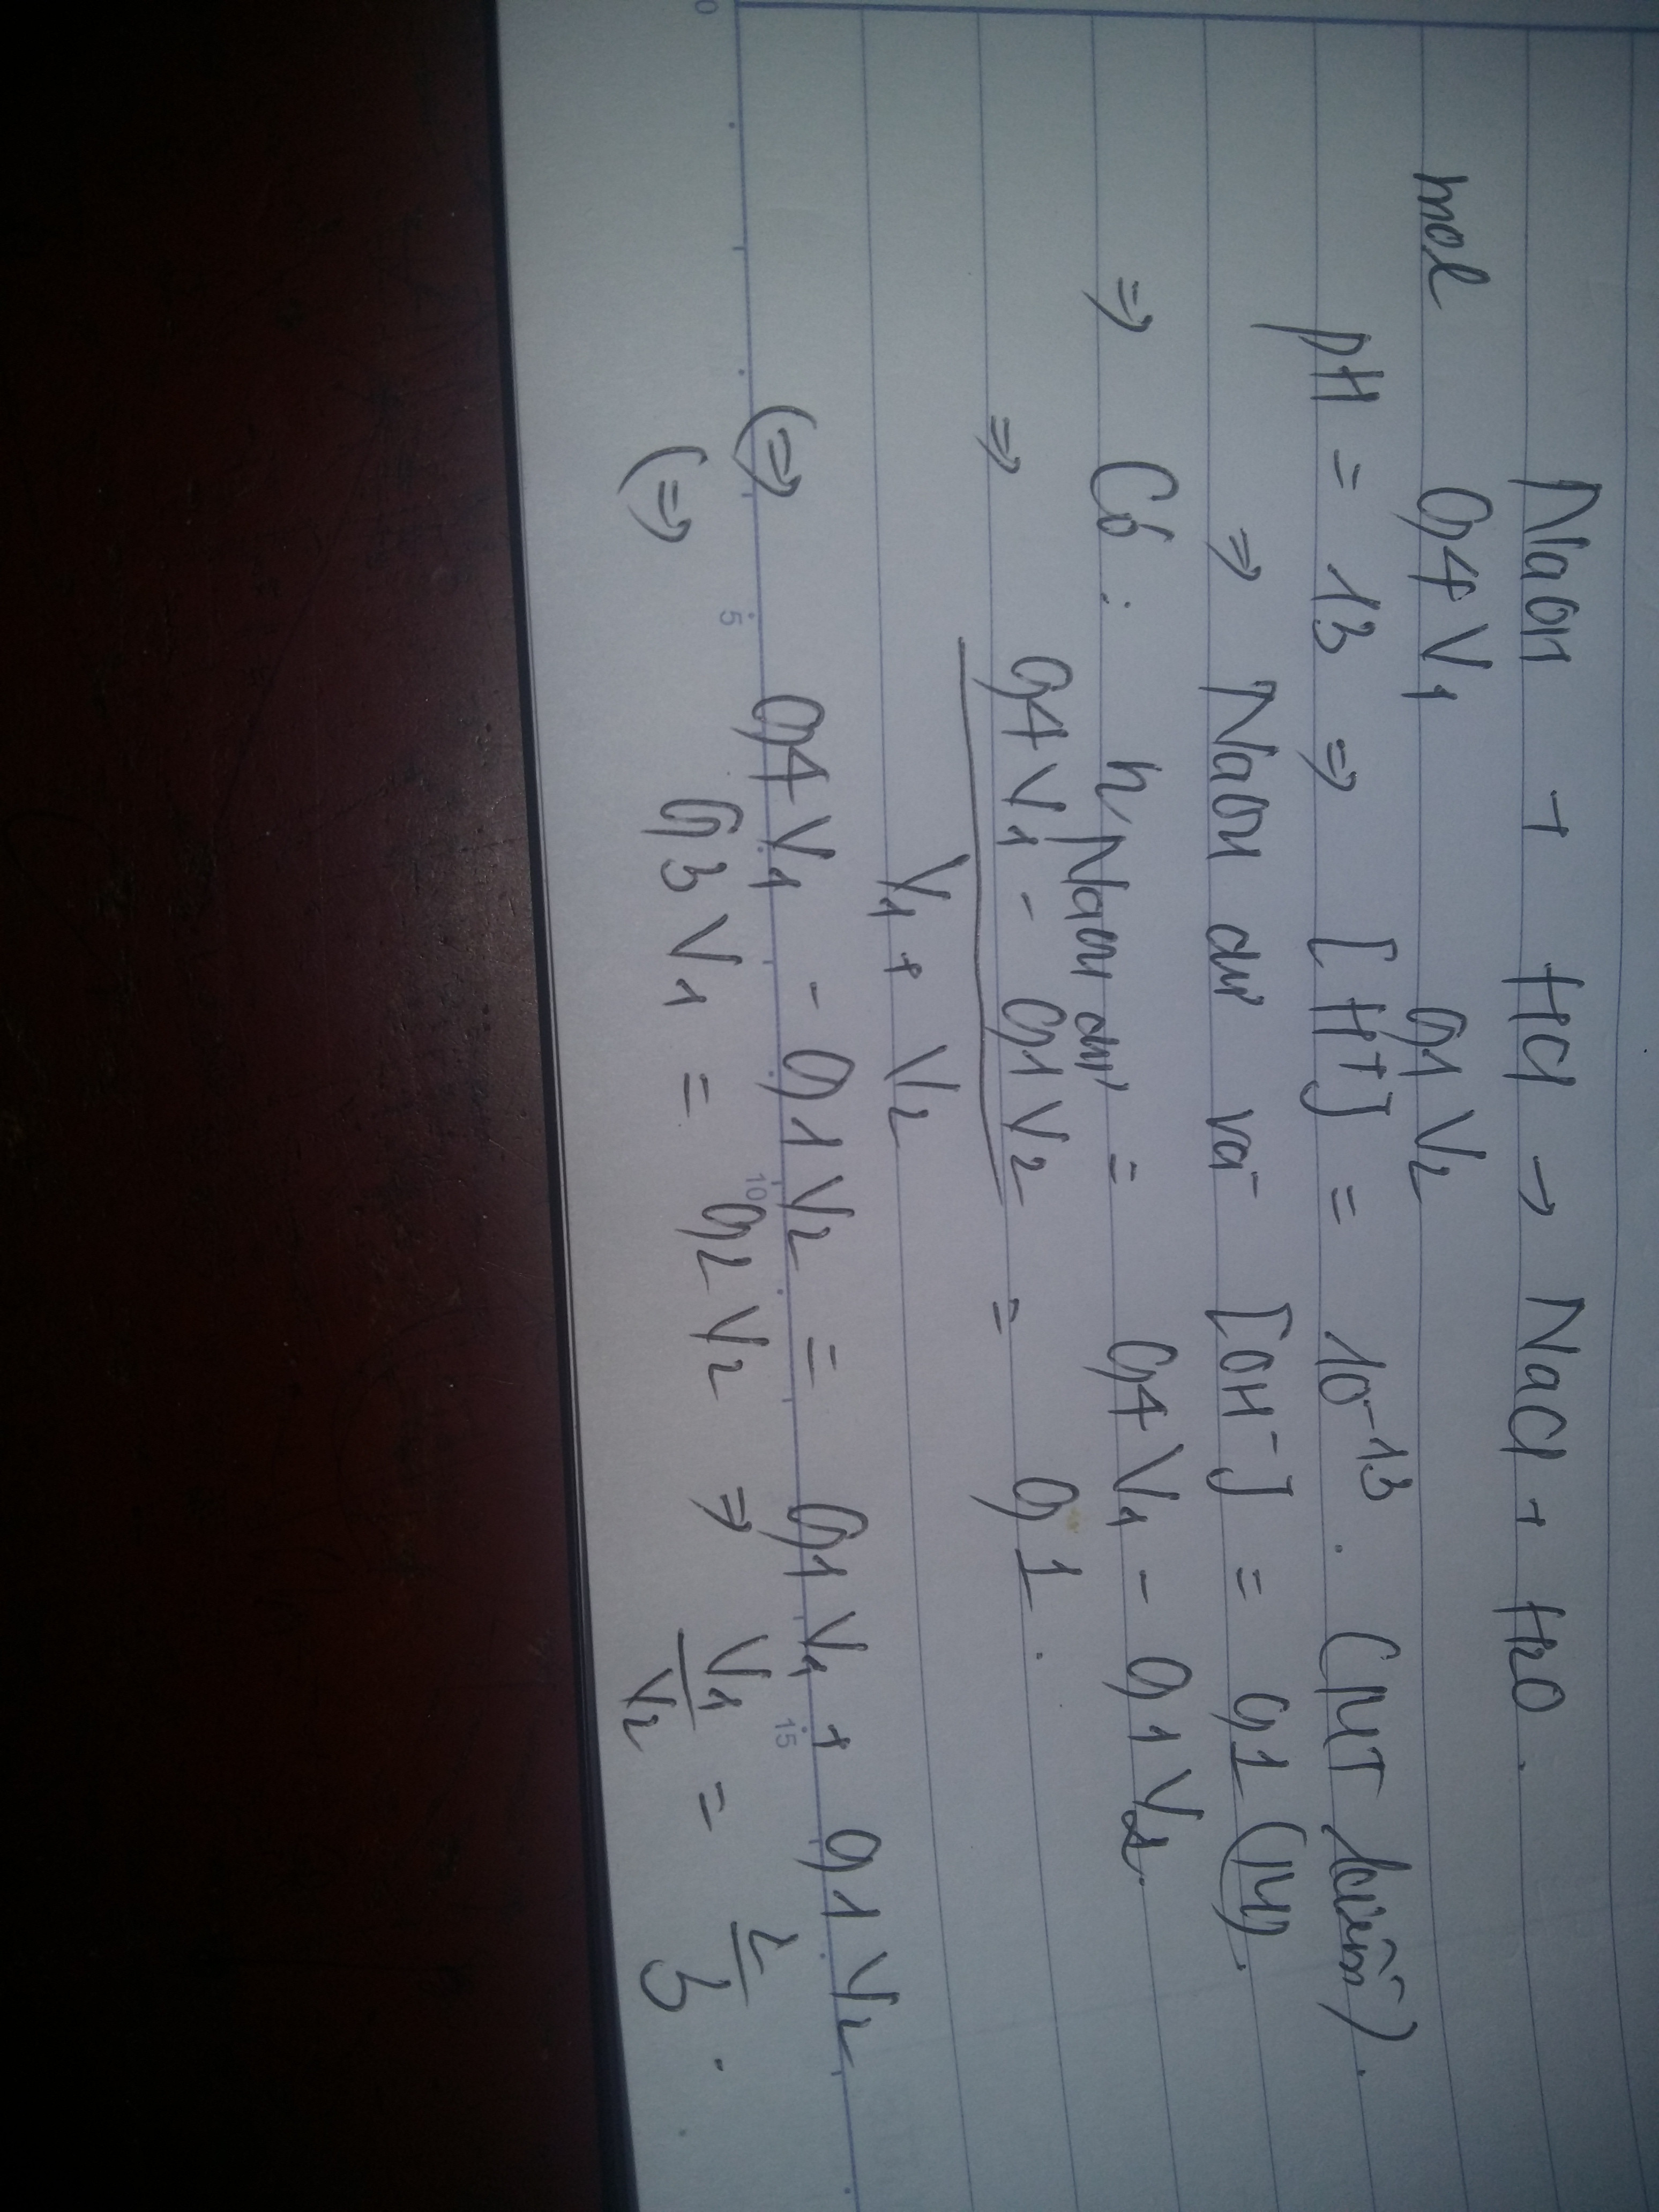 NaOH + HCl → NaCl + H2O.
mol 0,4V1 0,1V2
pH = 13 => [H+] = 10^-13. (MT kiềm).
=> NaOH dư và [OH-] = 0,1 (M).
=> Có: nNaOH dư = 0,4V1 - 0,1V2.
=> (0,4V1 - 0,1V2) / (V1 + V2) = 0,1.
(=) 0,4V1 - 0,1V2 = 0,1V1 + 0,1V2
(=) 0,3V1 = 0,2V2 => V1/V2 = 2/3.
0 5 10 15